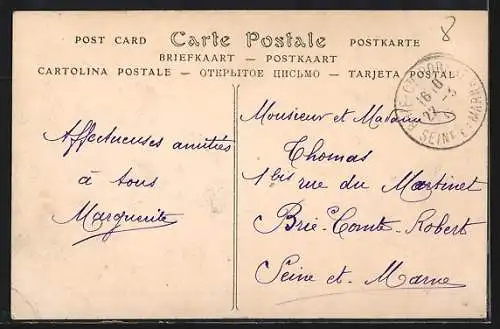 8
POST CARD Carte Postale POSTKARTE
BRIEFKAART — POSTKAART
CARTOLINA POSTALE — ОТКРЫТОЕ ПИСЬМО — TARJETA POSTAL
SEINE-ET-MARNE
Affectueuses amitiés
à tous
Marguerite
Monsieur et Madame
Thomas
1 bis rue du Martinet
Brie-Comte-Robert
Seine et Marne